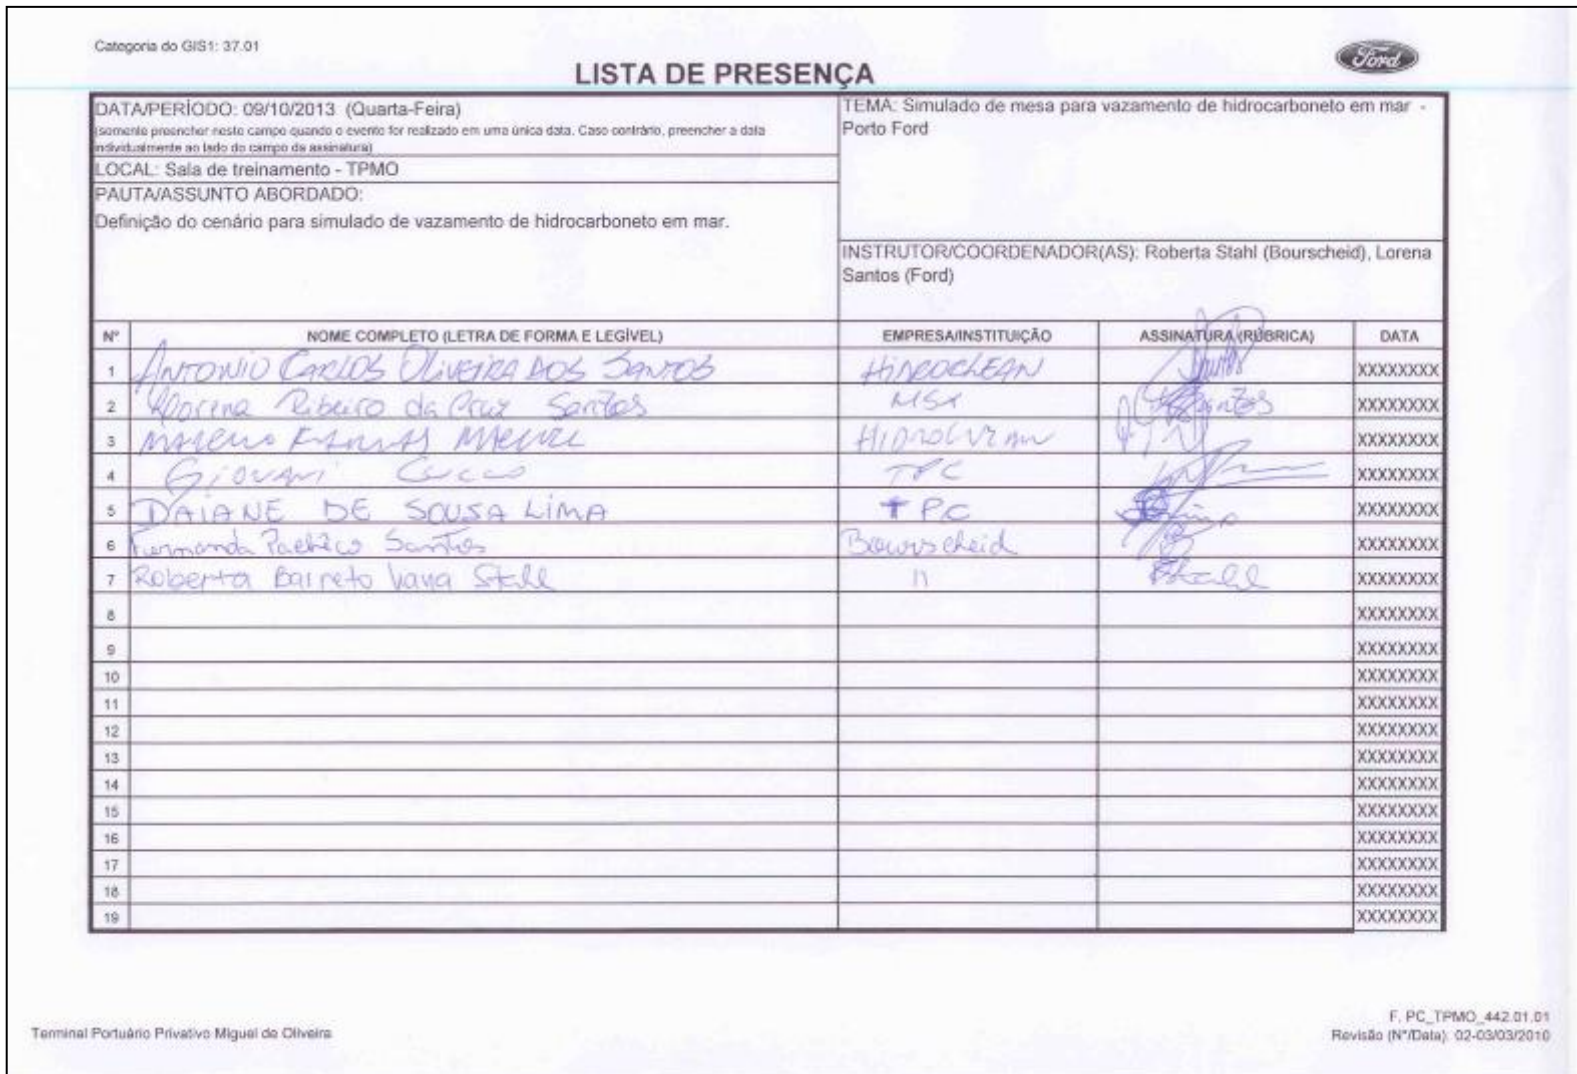 Categoria do GIS1: 37.01
Ford
LISTA DE PRESENÇA
DATA/PERÍODO: 09/10/2013 (Quarta-Feira)
(somente preencher neste campo quando o evento for realizado em uma única data. Caso contrário, preencher a data
individualmente ao lado do campo da assinatura)
LOCAL: Sala de treinamento - TPMO
PAUTA/ASSUNTO ABORDADO:
Definição do cenário para simulado de vazamento de hidrocarboneto em mar.
TEMA: Simulado de mesa para vazamento de hidrocarboneto em mar -
Porto Ford
INSTRUTOR/COORDENADOR(AS): Roberta Stahl (Bourscheid), Lorena
Santos (Ford)
Nº NOME COMPLETO (LETRA DE FORMA E LEGÍVEL) EMPRESA/INSTITUIÇÃO ASSINATURA (RÚBRICA) DATA
1 ANTONIO CARLOS OLIVEIRA DOS SANTOS HIDROCLEAN XXXXXXXX
2 Lorena Ribeiro da Cruz Santos MSX XXXXXXXX
3 HIDROCLEAN XXXXXXXX
4 GIOVANI TPC XXXXXXXX
5 DAIANE DE SOUSA LIMA TPC XXXXXXXX
6 Fernanda Pacheco Santos Bourscheid XXXXXXXX
7 Roberta Barreto Stahl 11 Stahl XXXXXXXX
8 XXXXXXXX
9 XXXXXXXX
10 XXXXXXXX
11 XXXXXXXX
12 XXXXXXXX
13 XXXXXXXX
14 XXXXXXXX
15 XXXXXXXX
16 XXXXXXXX
17 XXXXXXXX
18 XXXXXXXX
19 XXXXXXXX
Terminal Portuário Privativo Miguel de Oliveira
F. PC_TPMO_442.01.01
Revisão (Nº/Data): 02-03/03/2010